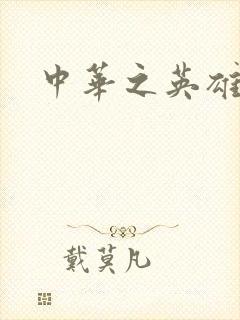 中华之英雄
戴莫凡